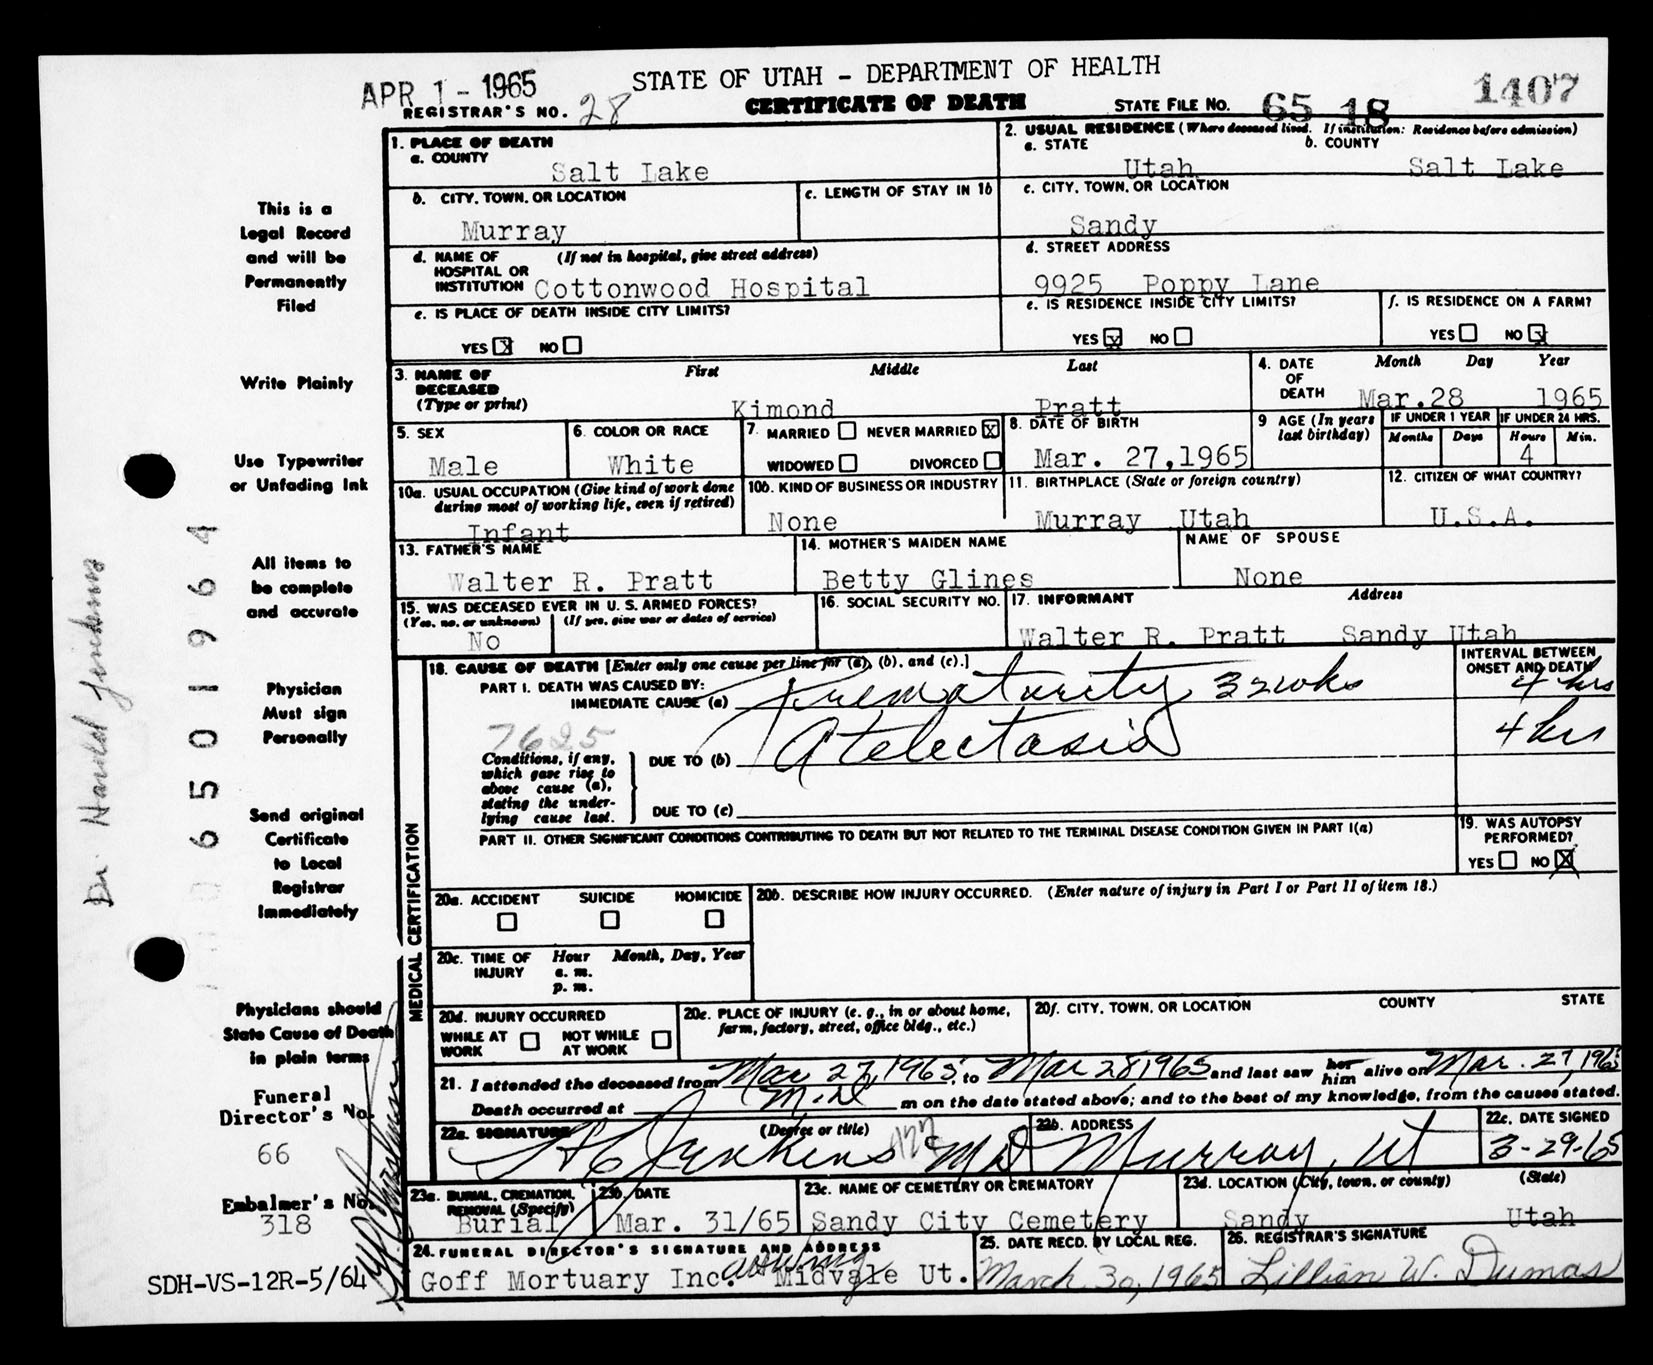 APR 1 - 1965
STATE OF UTAH - DEPARTMENT OF HEALTH
CERTIFICATE OF DEATH
REGISTRAR'S NO. 28
STATE FILE NO. 65 18 1407
This is a
Legal Record
and will be
Permanently
Filed
Write Plainly
Use Typewriter
or Unfading Ink
All items to
be complete
and accurate
Physician
Must sign
Personally
Send original
Certificate
to Local
Registrar
Immediately
Physicians should
State Cause of Death
in plain terms
Funeral
Director's No.
66
Embalmer's No.
318
SDH-VS-12R-5/64
Dr. Harold
0 6 5 0 1 9 6 4
1. PLACE OF DEATH
a. COUNTY
Salt Lake
b. CITY, TOWN, OR LOCATION
Murray
c. LENGTH OF STAY IN 1b
d. NAME OF HOSPITAL OR INSTITUTION (If not in hospital, give street address)
Cottonwood Hospital
e. IS PLACE OF DEATH INSIDE CITY LIMITS?
YES X NO
2. USUAL RESIDENCE (Where deceased lived. If institution: Residence before admission)
a. STATE b. COUNTY
Utah Salt Lake
c. CITY, TOWN, OR LOCATION
Sandy
d. STREET ADDRESS
9925 Poppy Lane
e. IS RESIDENCE INSIDE CITY LIMITS?
YES X NO
f. IS RESIDENCE ON A FARM?
YES NO X
3. NAME OF DECEASED (Type or print)
First Middle Last
Kimond Pratt
4. DATE OF DEATH Month Day Year
Mar. 28 1965
5. SEX
Male
6. COLOR OR RACE
White
7. MARRIED NEVER MARRIED X
WIDOWED DIVORCED
8. DATE OF BIRTH
Mar. 27, 1965
9 AGE (In years last birthday)
IF UNDER 1 YEAR IF UNDER 24 HRS.
Months Days Hours Min.
4
10a. USUAL OCCUPATION (Give kind of work done during most of working life, even if retired)
Infant
10b. KIND OF BUSINESS OR INDUSTRY
None
11. BIRTHPLACE (State or foreign country)
Murray Utah
12. CITIZEN OF WHAT COUNTRY?
U.S.A.
13. FATHER'S NAME
Walter R. Pratt
14. MOTHER'S MAIDEN NAME
Betty Glines
NAME OF SPOUSE
None
15. WAS DECEASED EVER IN U. S. ARMED FORCES?
(Yes, no, or unknown) (If yes, give war or dates of service)
No
16. SOCIAL SECURITY NO.
17. INFORMANT Address
Walter R. Pratt Sandy Utah
MEDICAL CERTIFICATION
18. CAUSE OF DEATH [Enter only one cause per line for (a), (b), and (c).]
INTERVAL BETWEEN ONSET AND DEATH
PART I. DEATH WAS CAUSED BY:
IMMEDIATE CAUSE (a) Prematurity 32 wks 4 hrs
7625
Conditions, if any, which gave rise to above cause (a), stating the underlying cause last.
DUE TO (b) Atelectasis 4 hrs
DUE TO (c)
PART II. OTHER SIGNIFICANT CONDITIONS CONTRIBUTING TO DEATH BUT NOT RELATED TO THE TERMINAL DISEASE CONDITION GIVEN IN PART I(a)
19. WAS AUTOPSY PERFORMED?
YES NO X
20a. ACCIDENT SUICIDE HOMICIDE
20b. DESCRIBE HOW INJURY OCCURRED. (Enter nature of injury in Part I or Part II of item 18.)
20c. TIME OF INJURY Hour Month, Day, Year
a. m.
p. m.
20d. INJURY OCCURRED
WHILE AT WORK NOT WHILE AT WORK
20e. PLACE OF INJURY (e. g., in or about home, farm, factory, street, office bldg., etc.)
20f. CITY, TOWN, OR LOCATION COUNTY STATE
21. I attended the deceased from Mar 27, 1965, to Mar 28, 1965 and last saw her him alive on Mar. 27, 1965
Death occurred at m on the date stated above; and to the best of my knowledge, from the causes stated.
22a. SIGNATURE (Degree or title)
H C Jenkins MD
22b. ADDRESS
Murray, Ut
22c. DATE SIGNED
3-29-65
23a. BURIAL, CREMATION, REMOVAL (Specify)
Burial
23b. DATE
Mar. 31/65
23c. NAME OF CEMETERY OR CREMATORY
Sandy City Cemetery
23d. LOCATION (City, town, or county) (State)
Sandy Utah
24. FUNERAL DIRECTOR'S SIGNATURE AND ADDRESS
Goff Mortuary Inc. Midvale Ut.
25. DATE RECD. BY LOCAL REG.
March 30, 1965
26. REGISTRAR'S SIGNATURE
Lillian W. Dumas